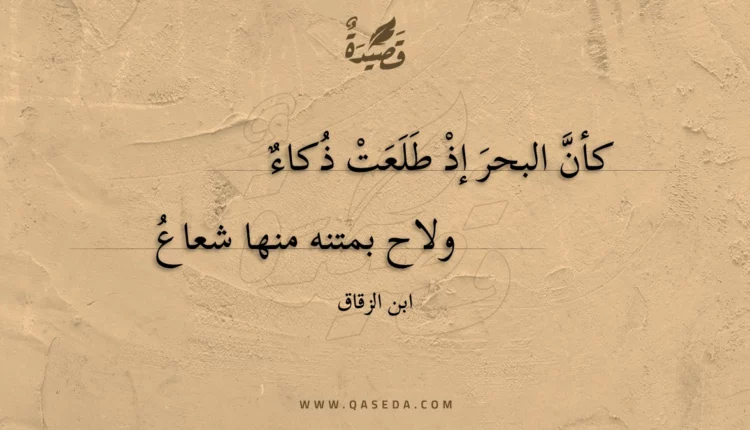 قَصِيْدَةٌ
كأنَّ البحرَ إذْ طَلَعَتْ ذُكاءٌ
ولاح بمتنه منها شعاعُ
ابن الزقاق
WWW.QASEDA.COM